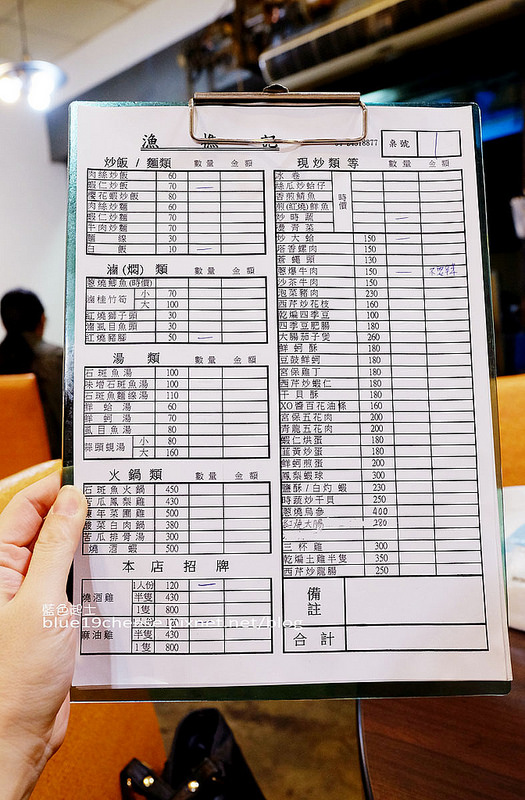 漁 樵 記
桌號 1
炒飯 / 麵類 數量 金額
肉絲炒飯 60
蝦仁炒飯 70 一
櫻花蝦炒飯 80
肉絲炒麵 60
蝦仁炒麵 70
牛肉炒麵 70
麵 線 30
白 飯 10 一
滷(燜) 類 數量 金額
蔥燒鯽魚(時價)
滷桂竹筍 小 70
大 100
紅燒獅子頭 30
滷虱目魚頭 30
紅燒豬腳 50 一
湯 類 數量 金額
石斑魚湯 100
味增石斑魚湯 100
石斑魚麵線湯 110
鮮 蛤 湯 60
鮮 蚵 湯 70
虱目魚湯 80
蒜頭蜆湯 小 80
大 160
火鍋類 數量 金額
石斑魚火鍋 450
苦瓜鳳梨雞 430
陳年菜圃雞 500
酸菜白肉鍋 380
苦瓜排骨湯 300
燒酒蝦 500
本店招牌
燒酒雞 1人份 120 一
半隻 430
1隻 800
麻油雞
半隻 430
1隻 800
現炒類等 數量 金額
冰 卷
絲瓜炒蛤仔
香煎鯖魚
煎(紅燒)鮮魚
炒時蔬 一
燙青菜
時價
炒大蛤 150 一
塔香螺肉 150
蒼蠅頭 130
蔥爆牛肉 150 一
沙茶牛肉 150
泡菜豬肉 230
西芹炒花枝 160
乾煸四季豆 100
四季豆肥腸 180
大腸茄子煲 260
鮮蚵酥 180
豆鼓鮮蚵 180
宮保雞丁 180
西芹炒蝦仁 180
干貝酥 180
XO醬百花油條 160
宮保五花肉 200
青龍五花肉 200
蝦仁烘蛋 180
韭黃炒蛋 180
鮮蚵煎蛋 200
鳳梨蝦球 300
鹽酥/白灼 蝦 230
時蔬炒干貝 250
蔥燒烏參 400
280
三杯雞 300
乾煸土雞半隻 350
西芹炒龍腸 250
備註
合計
藍色起士
blue19cheese.pixnet.net/blog